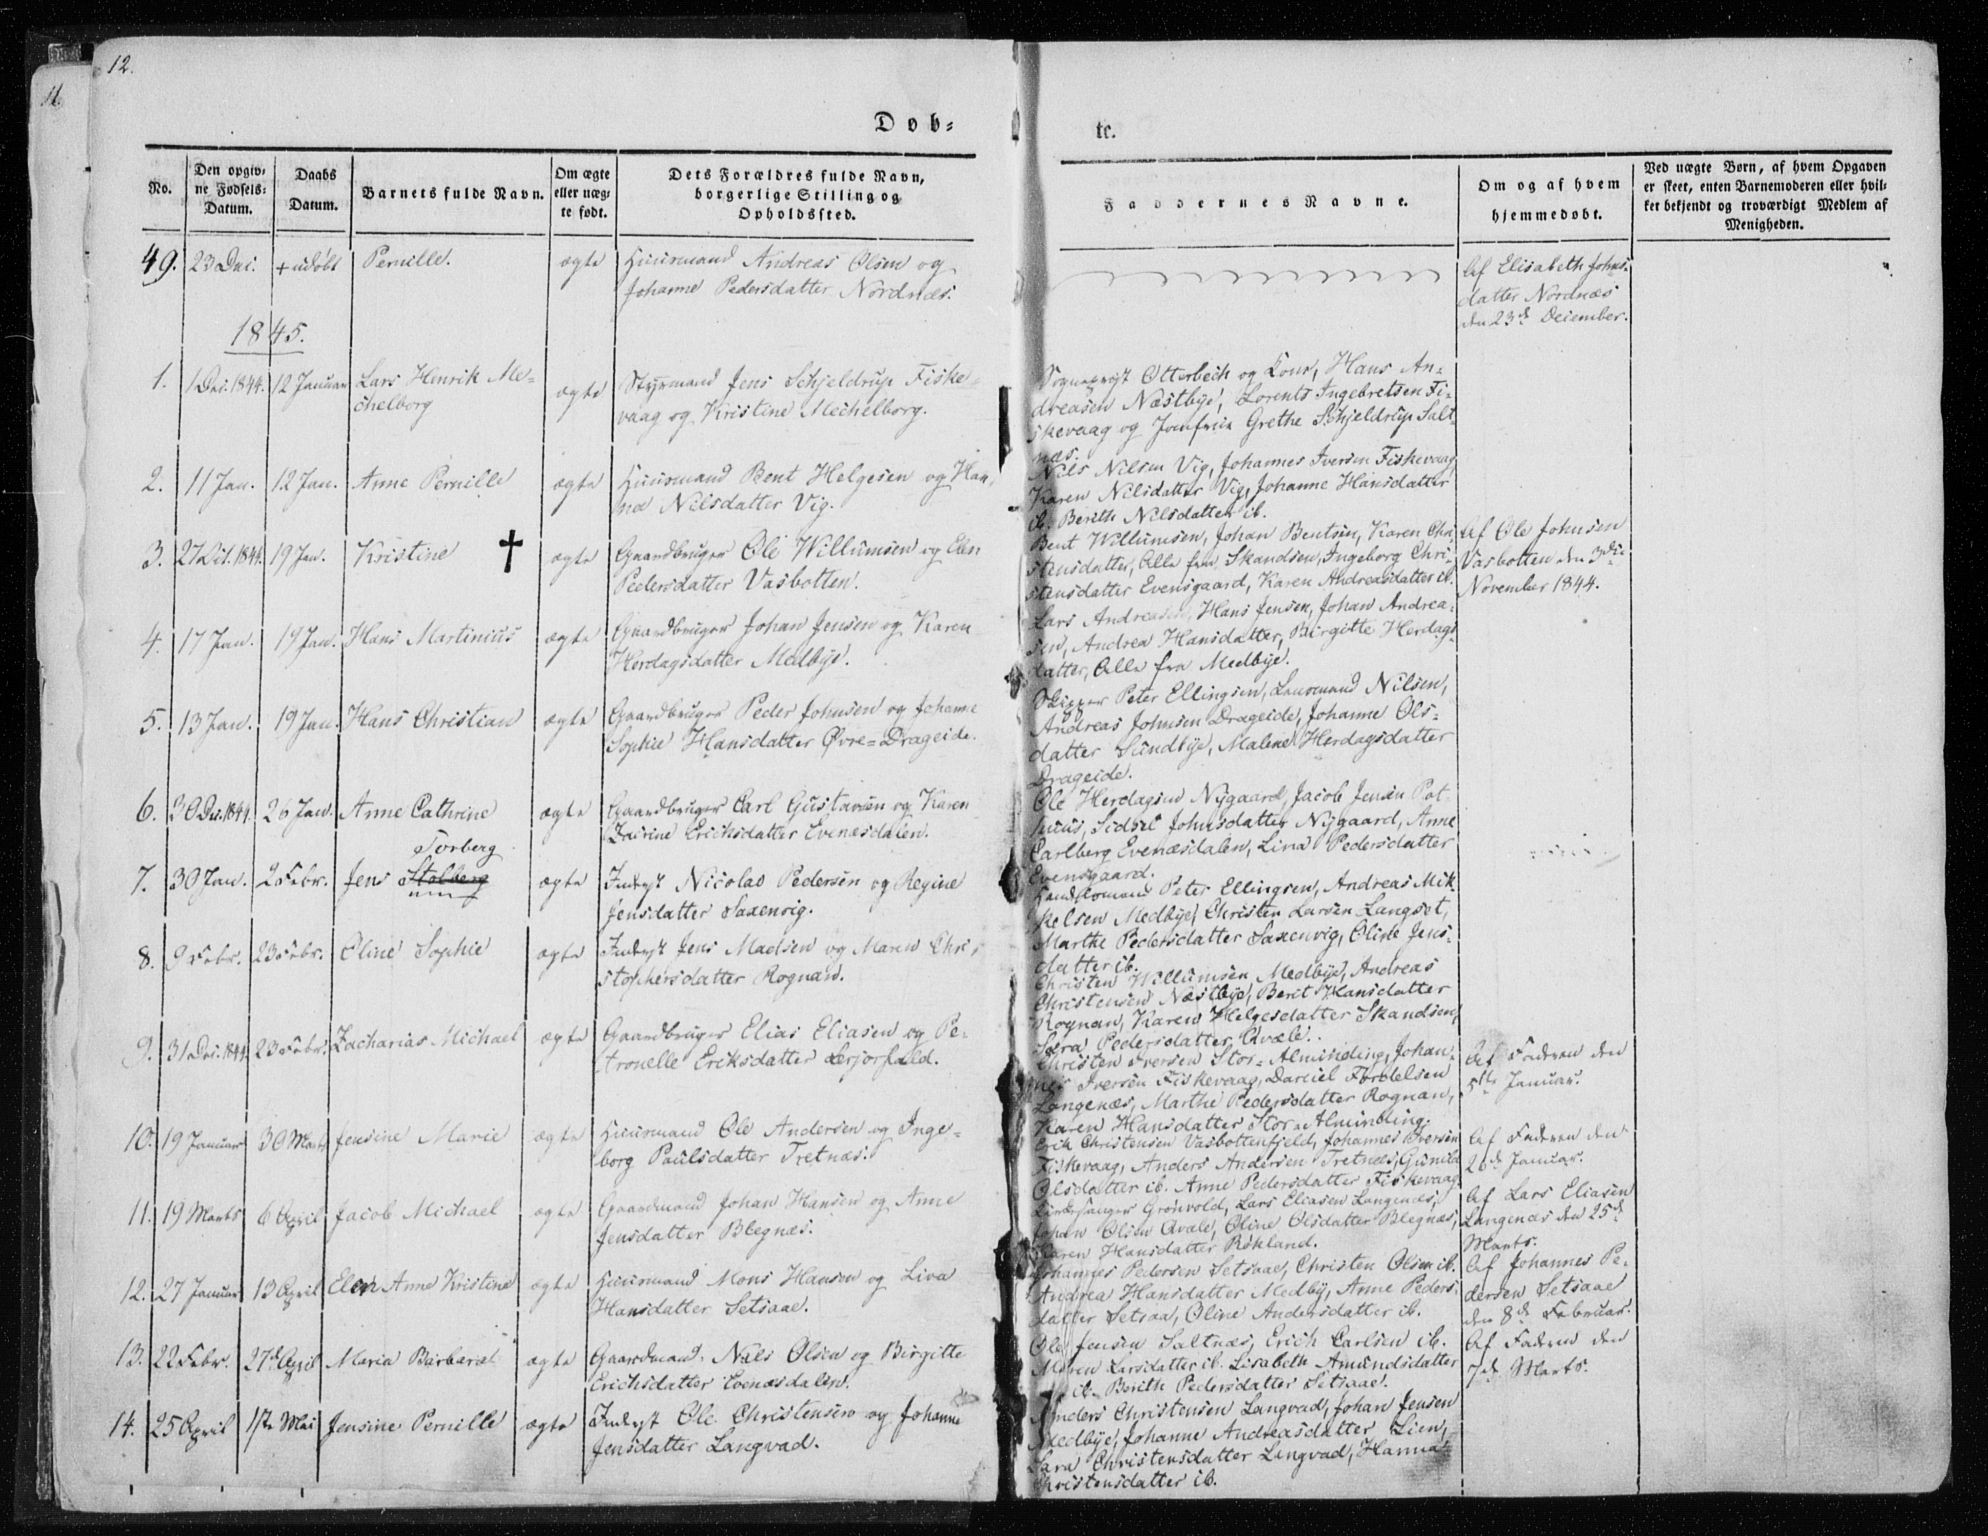 12.
11.
Døb=
te.
No.
Den opgiv=
ne Fødsels=
Datum.
Daabs
Datum.
Barnets fulde Navn.
Om ægte
eller uæg=
te født.
Dets Forældres fulde Navn,
borgerlige Stilling og
Opholdssted.
Faddernes Navne.
Om og af hvem
hjemmedøbt.
Ved uægte Børn, af hvem Opgaven
er skeet, enten Barnemoderen eller hvil=
ket bekjendt og troværdigt Medlem af
Menigheden.
49. 23 Dec. + udøbt Pernille. ægte Huusmand Andreas Olsen og
Johanne Pedersdatter Nordnæs.
Af Elisabeth Johns=
datter Nordnæs
den 23de December.
1845.
1. 1 Dec. 1844. 12 Januar Lars Henrik Me=
chelborg
ægte Styrmand Jens Schjeldrup Fiske=
vaag og Kristine Mechelborg.
Sognepræst Otterbech og Kone, Hans An=
dreasen Næstbye, Lorents Ingebretsen Fi=
skevaag og Jomfrue Grethe Schjeldrup Salt=
næs.
2. 11 Jan. 12 Jan. Anne Pernille ægte Huusmand Bent Helgesen og Han=
na Nilsdatter Vig.
Nils Nilsen Vig, Johannes Iversen Fiskevaag
Karen Nilsdatter Vig, Johanne Hansdatter
ib. Berith Nilsdatter ib.
3. 27 Oct. 1844. 19 Jan. Kristine ✝ ægte Gaardbruger Ole Willumsen og Elen
Pedersdatter Vasbotten.
Bent Willumsen, Johan Bentsen, Karen Chri=
stensdatter, Alle fra Skandsen, Ingeborg Chri=
stensdatter Evensgaard, Karen Andreasdatter ib.
Af Ole Johnsen
Vasbotten den 3die
November 1844.
4. 17 Jan. 19 Jan. Hans Martinius ægte Gaardbruger Johan Jensen og Karen
Herdagsdatter Medbye.
Lars Andreasen, Hans Jensen, Johan Andrea=
sen, Andrea Hansdatter, Birgitte Herdags=
datter, Alle fra Medbye.
5. 13 Jan. 19 Jan. Hans Christian ægte Gaardbruger Peder Johnsen og Johanne
Sophie Hansdatter Øvre=Drageide.
Skipper Peter Ellingsen, Lensmand Nilsen,
Andreas Johnsen Drageide, Johanne Ols=
datter Sundbye, Malene Herdagsdatter
Drageide.
6. 30 Dec. 1844. 26 Jan. Anne Cathrine ægte Gaardbruger Carl Gustavsen og Karen
Erichsdatter Evenæsdalen.
Ole Herdagsen Nygaard, Jacob Jensen Pot=
huus, Sidsel Johnsdatter Nygaard, Anne
Carlberg Evenæsdalen, Lina Pedersdatter
Evensgaard.
Torberg
7. 30 Jan. 2 Febr. Jens Stolberg ægte Inderst Nicolas Pedersen og Regine
Jensdatter Saxenvig.
Peter Ellingsen, Andreas Mik=
kelsen Medbye, Christen Larsen Langset,
Marthe Pedersdatter Saxenvig, Oline Jens=
datter ib.
8. 9 Febr. 23 Febr. Oline Sophie ægte Inderst Jens Madsen og Maren Chri=
stophersdatter Rognan.
Christen Willumsen Medbye, Andreas
Christensen Næstbye, Berit Hansdatter
Rognan, Karen Helgesdatter Skandsen,
Sara Pedersdatter Qvæle.
9. 31 Dec. 1844. 23 Febr. Zacharias Michael ægte Gaardbruger Elias Eliasen og Pe=
tronelle Eriksdatter
Christen Iversen Stor=Alminding, Johan=
nes Iversen Fiskevaag, Daniel
Langenæs, Marthe Pedersdatter Rognan,
Karen Hansdatter Stor=Alminding.
Af Faderen den
5te Januar.
10. 19 Januar 30 Marts Jensine Marie ægte Huusmand Ole Andersen og Inge=
borg Paulsdatter Tretnæs.
Erik Christensen Vasbottenfjeld, Johannes Iversen
Fiskevaag, Anders Andersen Tretnæs, Gunild
Olsdatter ib. Anne Pedersdatter Fiskevaag.
Af Faderen den
20de Januar.
11. 19 Marts 6 April Jacob Michael ægte Gaardmand Johan Hansen og Anne
Jensdatter Blegnæs.
Kirkesanger Grønvold, Lars Eliasen Langenæs,
Johan Olsen Qvale, Oline Olsdatter Blegnæs,
Karen Hansdatter Røkland.
Af Lars Eliasen
Langenæs den 25de
Marts.
12. 27 Januar 13 April Elen Anne Kristine ægte Huusmand Mons Hansen og Liva
Hansdatter Setsaae.
Johannes Pedersen Setsaae, Christen Olsen ib.
Andrea Hansdatter Medby, Anne Peders=
datter Setsaa, Oline Andersdatter ib.
Af Johannes Pe=
dersen Setsaae
den 8de Februar.
13. 22 Febr. 27de April Maria Barbara ægte Gaardmand Nils Olsen og Birgitte
Erichsdatter Evenæsdalen.
Ole Jensen Saltnæs, Erich Carlsen ib.
Maren Larsdatter ib. Lisabeth Amundsdatter
ib. Berith Pedersdatter Setsaae.
Af Faderen den
7de Marts.
14. 25 April 1ste Mai Jensine Pernille ægte Inderst Ole Christensen og Johanne
Jensdatter Langvad.
Anders Christensen Langvad, Johan Jensen
Medbye, Johanne Andreasdatter Lien,
Sara Christensdatter Langvad, Hanna
Christensdatter ib.